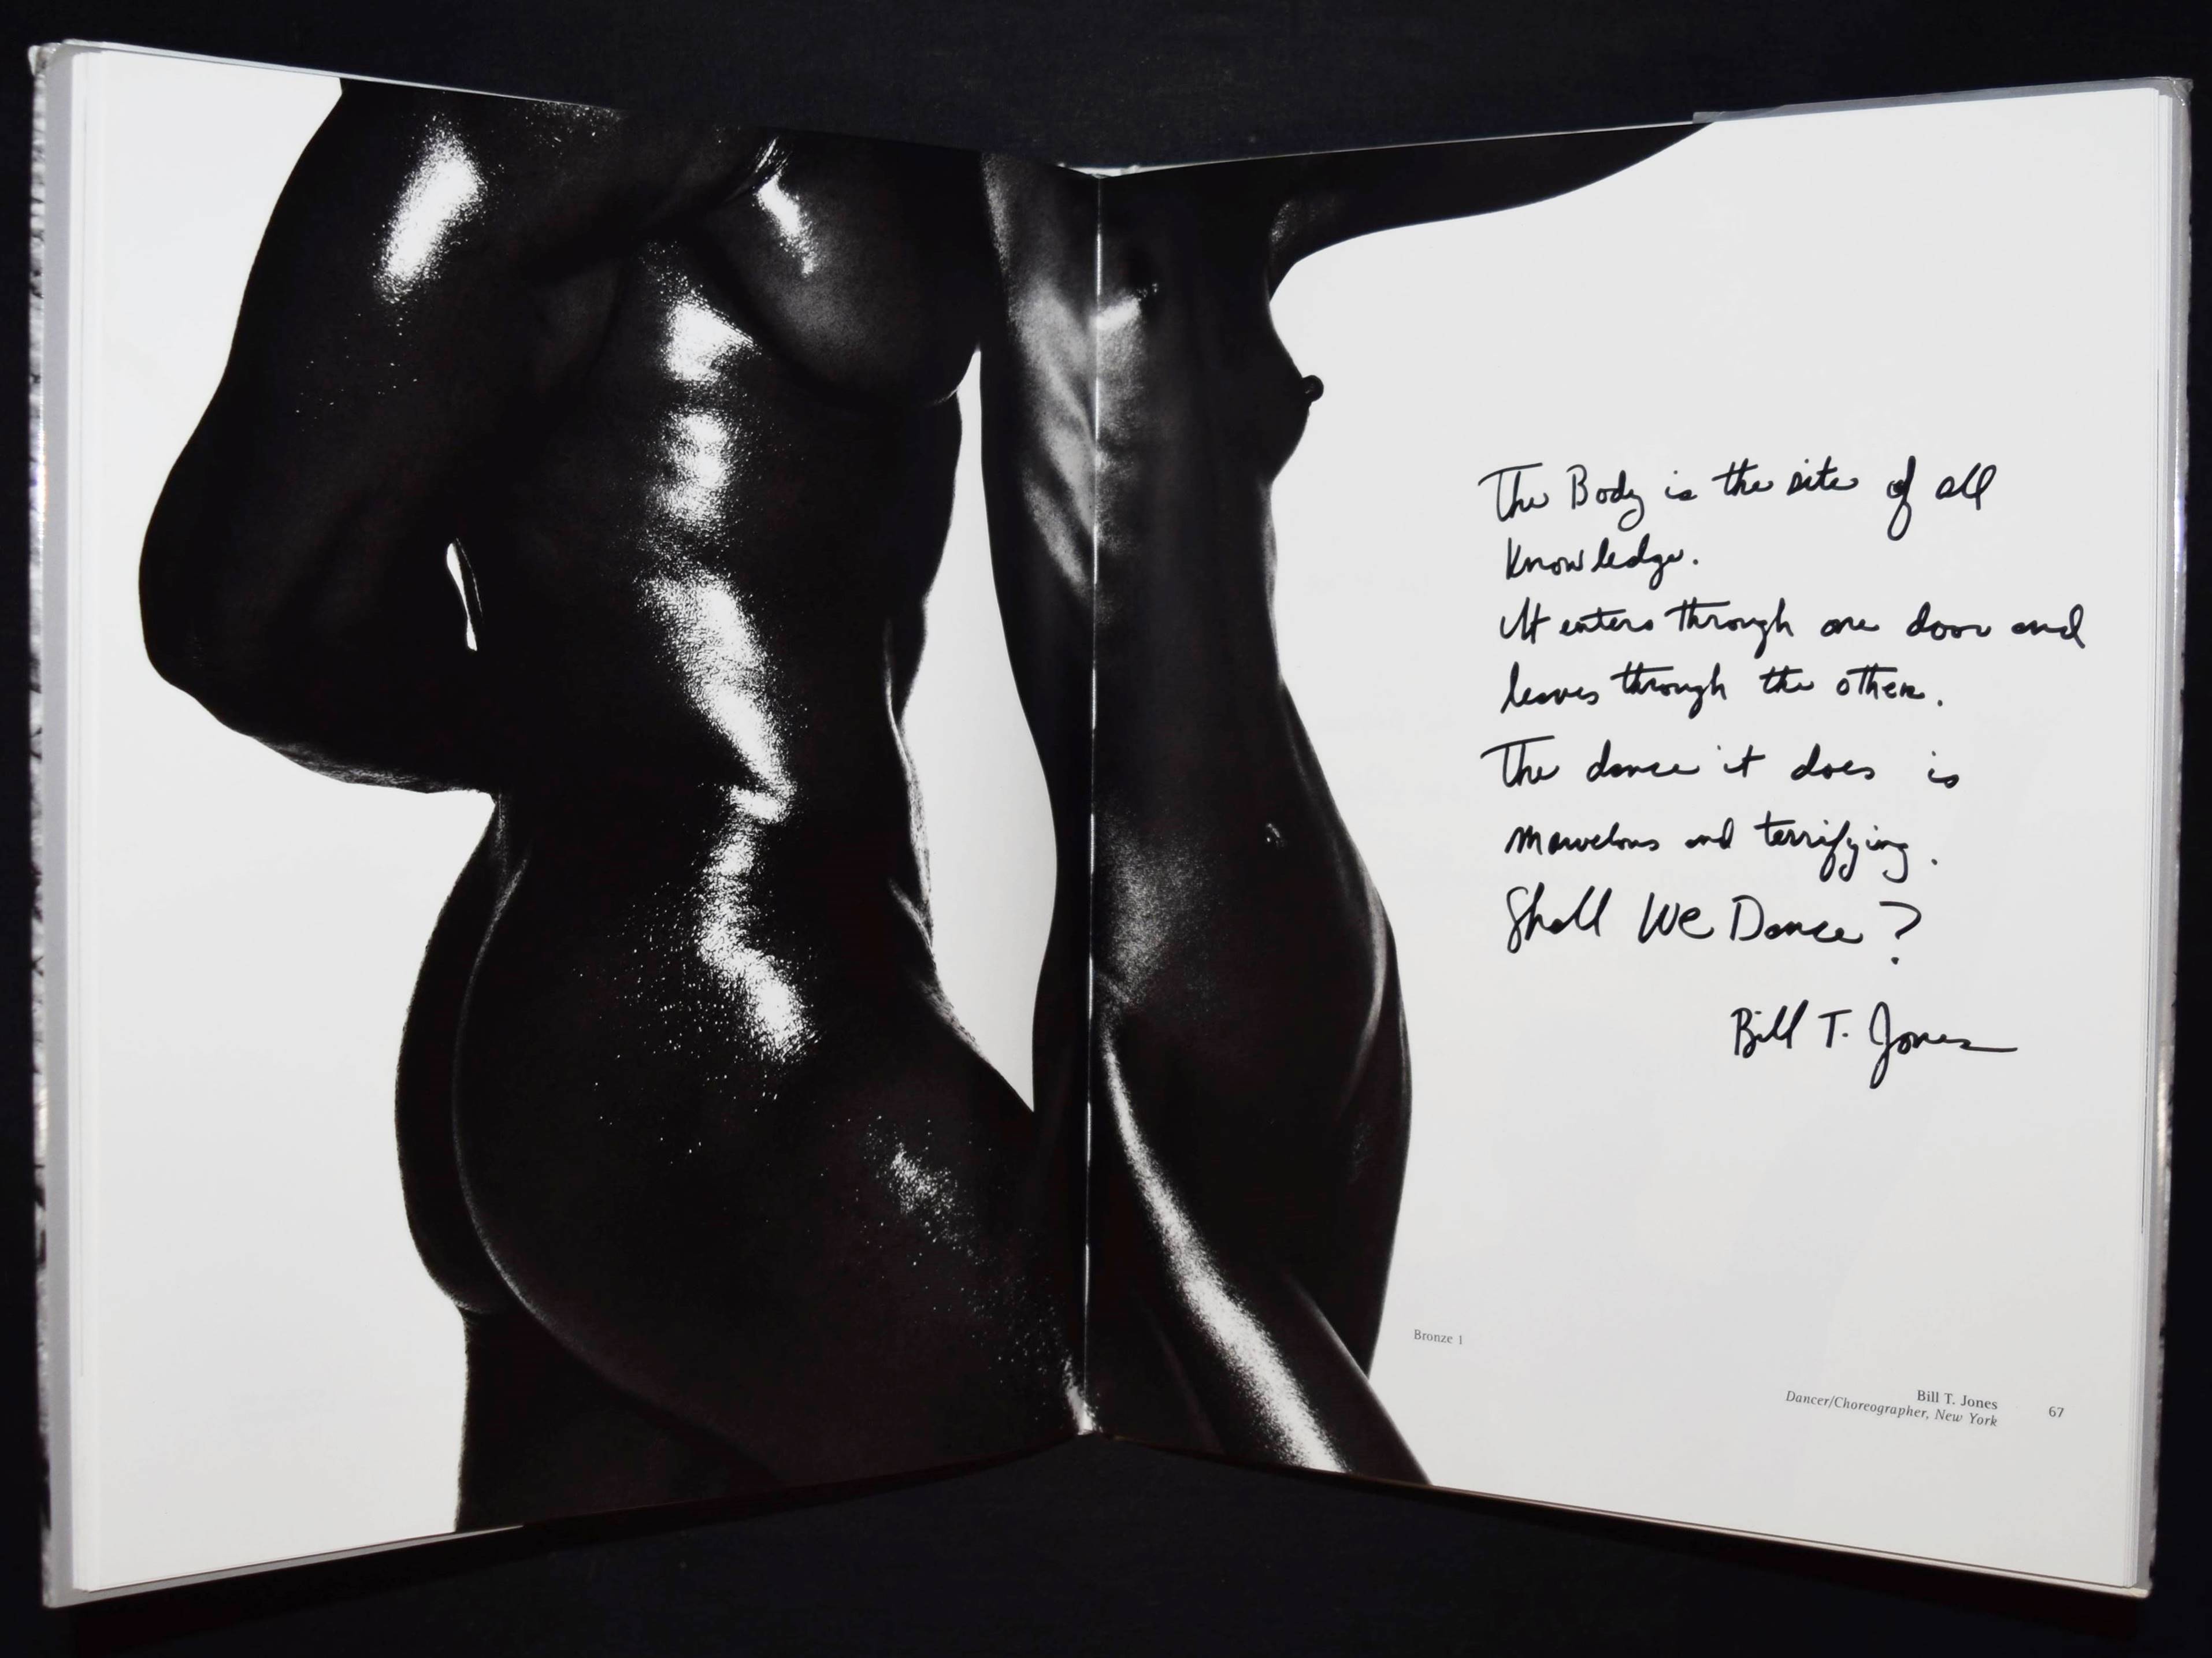 The Body is the site of all
Knowledge.
It enters through one door and
leaves through the other.
The dance it does is
marvelous and terrifying.
Shall We Dance?
Bill T. Jones
Bronze 1
Bill T. Jones
Dancer/Choreographer, New York
67